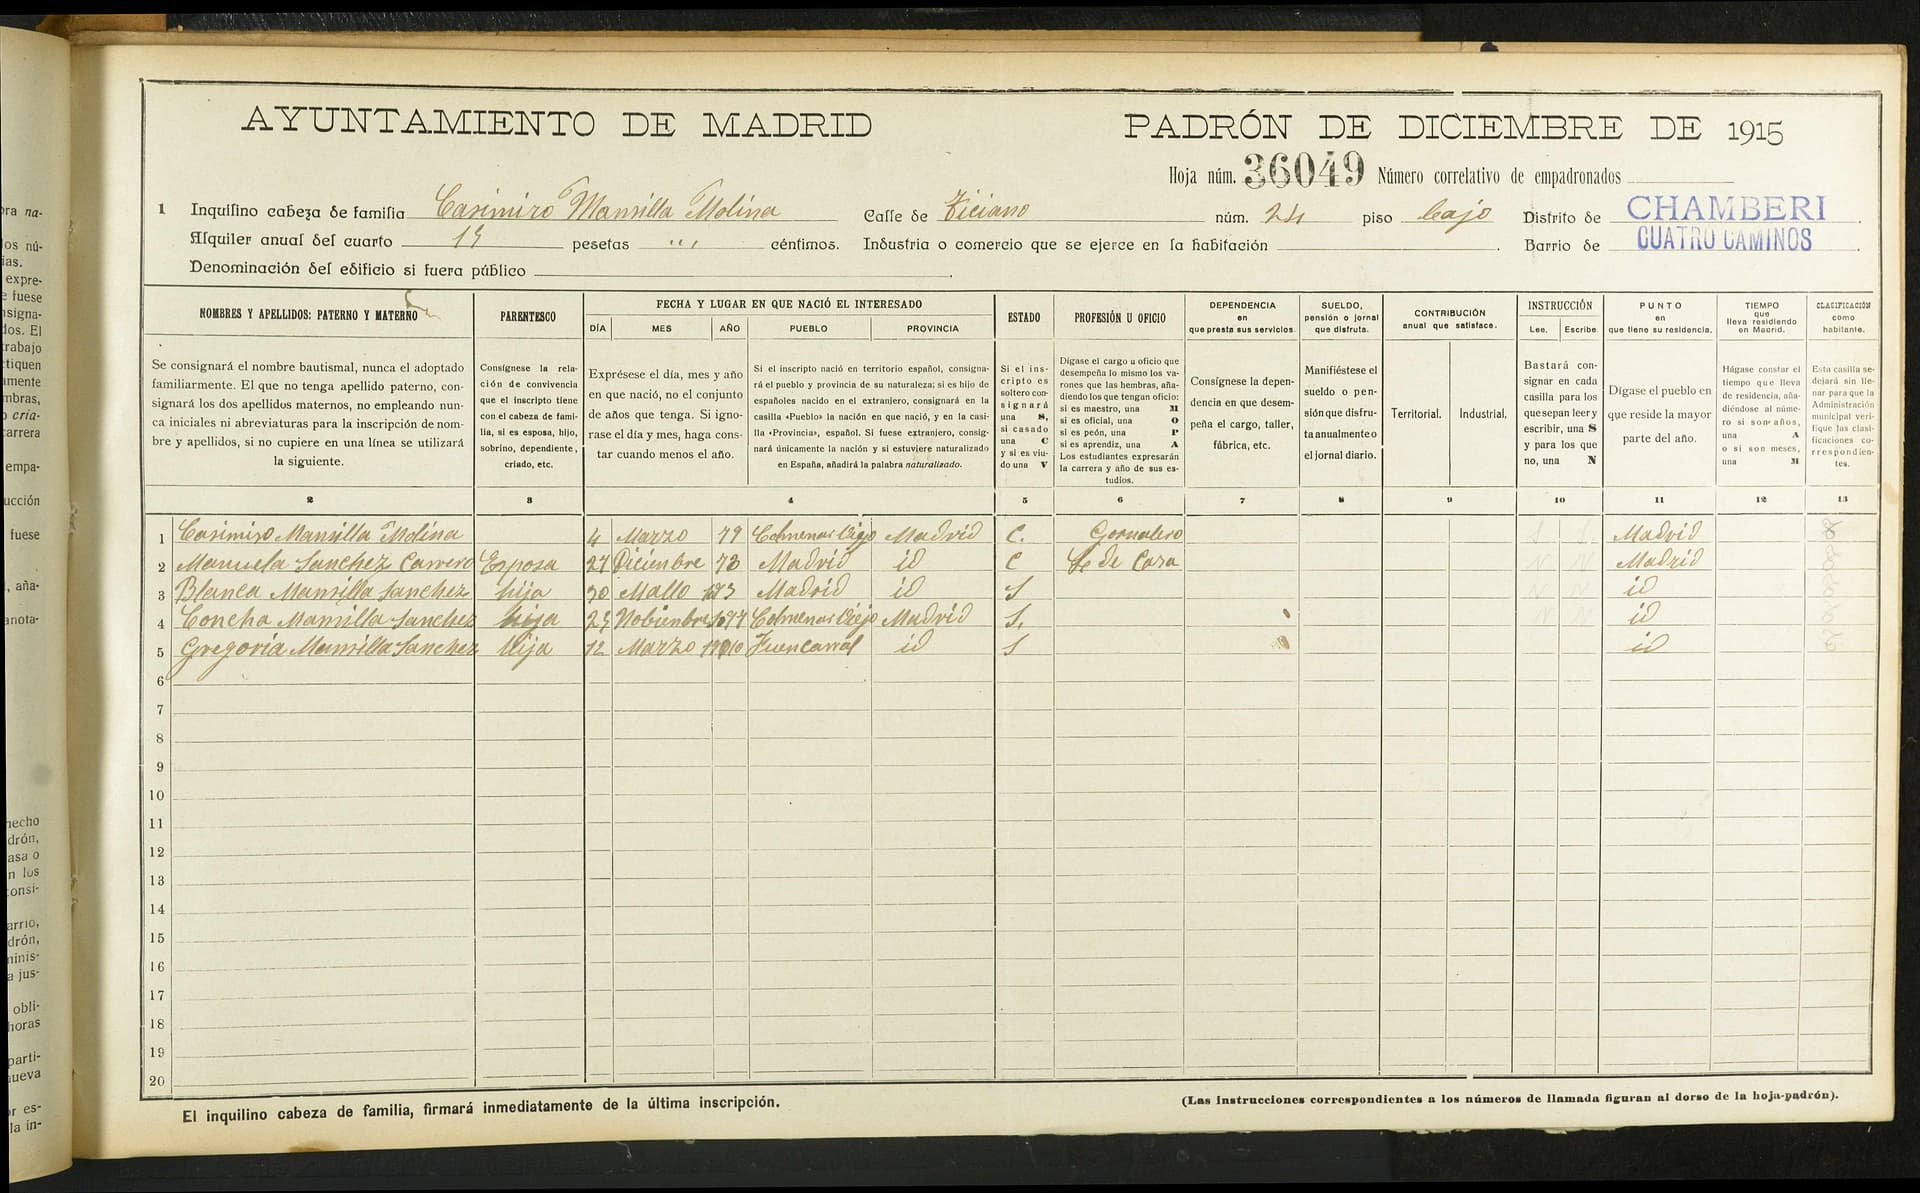 AYUNTAMIENTO DE MADRID
PADRÓN DE DICIEMBRE DE 1915
Hoja núm. 36049 Número correlativo de empadronados
1 Inquilino cabeza de familia Casimiro Mansilla Molina Calle de Ticiano núm. 24 piso bajo Distrito de CHAMBERI
Alquiler anual del cuarto 15 pesetas " céntimos. Industria o comercio que se ejerce en la habitación Barrio de CUATRO CAMINOS
Denominación del edificio si fuera público
NOMBRES Y APELLIDOS: PATERNO Y MATERNO
Se consignará el nombre bautismal, nunca el adoptado
familiarmente. El que no tenga apellido paterno, con-
signará los dos apellidos maternos, no empleando nun-
ca iniciales ni abreviaturas para la inscripción de nom-
bre y apellidos, si no cupiere en una línea se utilizará
la siguiente.
2
PARENTESCO
Consígnese la rela-
ción de convivencia
que el inscripto tiene
con el cabeza de fami-
lia, si es esposa, hijo,
sobrino, dependiente,
criado, etc.
3
FECHA Y LUGAR EN QUE NACIÓ EL INTERESADO
DÍA MES AÑO PUEBLO PROVINCIA
Exprésese el día, mes y año
en que nació, no el conjunto
de años que tenga. Si igno-
rase el día y mes, haga cons-
tar cuando menos el año.
Si el inscripto nació en territorio español, consigna-
rá el pueblo y provincia de su naturaleza; si es hijo de
españoles nacido en el extranjero, consignará en la
casilla «Pueblo» la nación en que nació, y en la casi-
lla «Provincia», español. Si fuese extranjero, consig-
nará únicamente la nación y si estuviere naturalizado
en España, añadirá la palabra naturalizado.
4
ESTADO
Si el ins-
cripto es
soltero con-
signará
una S,
si casado
una C
y si es viu-
do una V
5
PROFESIÓN U OFICIO
Dígase el cargo u oficio que
desempeña lo mismo los va-
rones que las hembras, aña-
diendo los que tengan oficio:
si es maestro, una M
si es oficial, una O
si es peón, una P
si es aprendiz, una A
Los estudiantes expresarán
la carrera y año de sus es-
tudios.
6
DEPENDENCIA
en
que presta sus servicios.
Consígnese la depen-
dencia en que desem-
peña el cargo, taller,
fábrica, etc.
7
SUELDO,
pensión o jornal
que disfruta.
Manifiéstese el
sueldo o pen-
sión que disfru-
ta anualmente o
el jornal diario.
8
CONTRIBUCIÓN
anual que satisface.
Territorial. Industrial.
9
INSTRUCCIÓN
Lee. Escribe.
Bastará con-
signar en cada
casilla para los
que sepan leer y
escribir, una S
y para los que
no, una N
10
PUNTO
en
que tiene su residencia.
Dígase el pueblo en
que reside la mayor
parte del año.
11
TIEMPO
que
lleva residiendo
en Madrid.
Hágase constar el
tiempo que lleva
de residencia, aña-
diéndose al núme-
ro si son años,
una A
o si son meses,
una M
12
CLASIFICACIÓN
como
habitante.
Esta casilla se-
dejará sin lle-
nar para que la
Administración
municipal veri-
fique las clasi-
ficaciones co-
rrespondien-
tes.
13
1 Casimiro Mansilla Molina 4 Marzo 79 Colmenar Viejo Madrid C. Gornalero S S Madrid
2 Manuela Sanchez Carrero Esposa 27 Diciembre 73 Madrid id C S. de Casa N N Madrid
3 Blanca Mansilla Sanchez hija 30 Mallo Madrid id S N N id
4 Concha Mansilla Sanchez hija 25 Nobienbre Colmenar Viejo Madrid S. N N id
5 Gregoria Mansilla Sanchez hija 12 Marzo Fuencarral id S id
6
7
8
9
10
11
12
13
14
15
16
17
18
19
20
El inquilino cabeza de familia, firmará inmediatamente de la última inscripción.
(Las instrucciones correspondientes a los números de llamada figuran al dorso de la hoja-padrón).